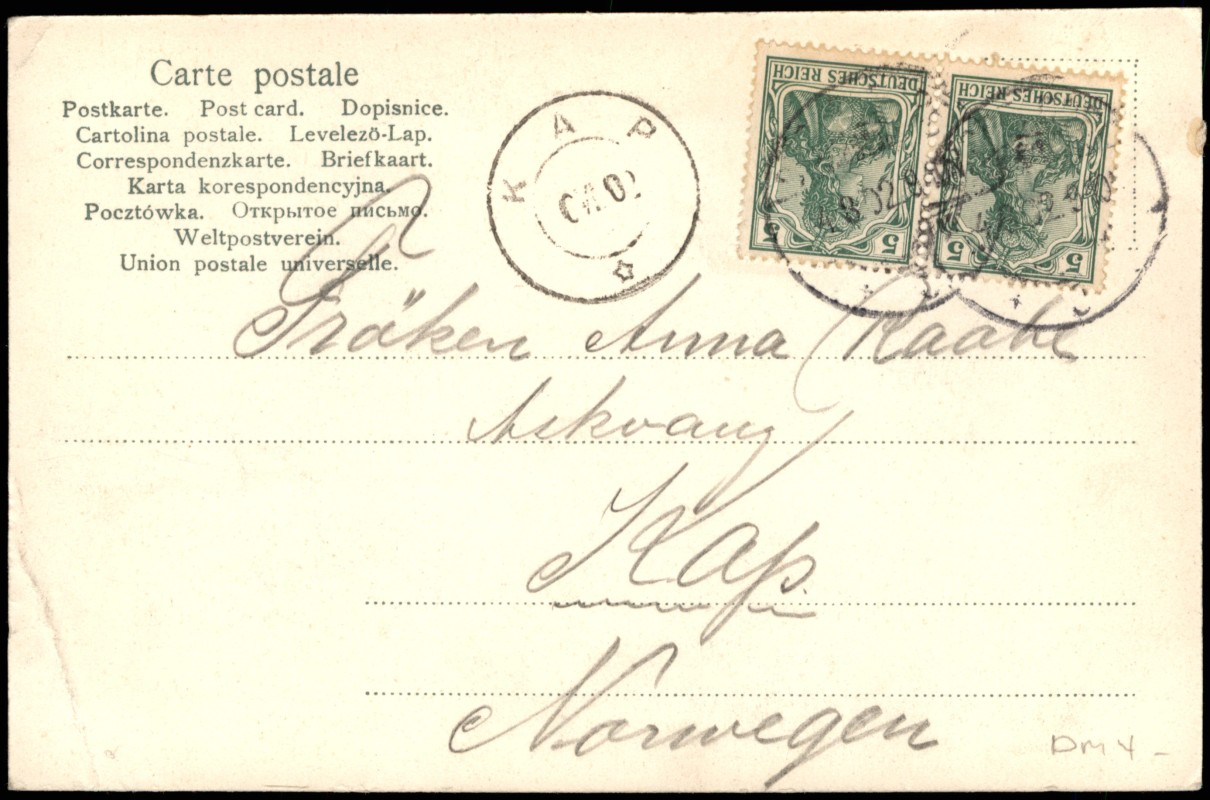 Carte postale
Postkarte. Post card. Dopisnice.
Cartolina postale. Levelező-Lap.
Correspondenzkarte. Briefkaart.
Karta korespondencyjna.
Pocztówka. Открытое письмо.
Weltpostverein.
Union postale universelle.
KAP
DEUTSCHES REICH
5
DEUTSCHES REICH
5
4.8.02.
Fröken Anna Raabe
Askvang
Kap.
Norwegen
DM 4 -